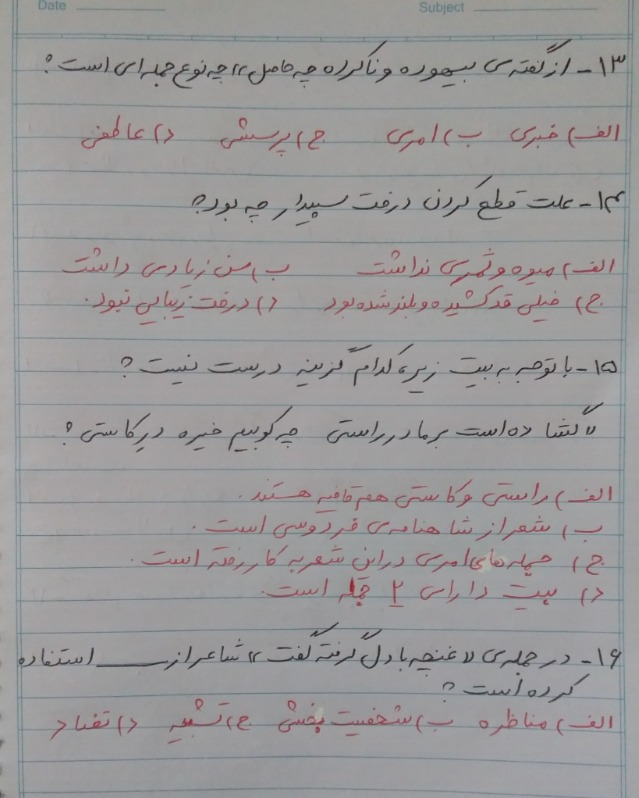 Date Subject
۱۳- از گفته‌ی بیهوده و ناکرده چه حاصل،، چه نوع جمله ای است؟
الف) خبری ب) امری ج) پرسشی د) عاطفی
۱۴- علت قطع کردن درخت سپیدار چه بود؟
الف) میوه و ثمری نداشت ب) سن زیادی داشت
ج) خیلی قد کشیده و بلند شده بود د) درخت زیبایی نبود.
۱۵- با توجه به بیت زیر، کدام گزینه درست نیست؟
«گشاده است بر ما در راستی چه کوبیم خیره در کاستی؟
الف) راستی و کاستی هم قافیه هستند.
ب) شعر از شاهنامه‌ی فردوسی است.
ج) جمله های امری در این شعر به کار رفته است.
د) بیت دارای ۲ جمله است.
۱۶- در جمله‌ی «غنچه با دل گرفته گفت،، شاعر از ــــــ استفاده
کرده است؟
الف) مناظره ب) شخصیت بخشی ج) تشبیه د) تضاد